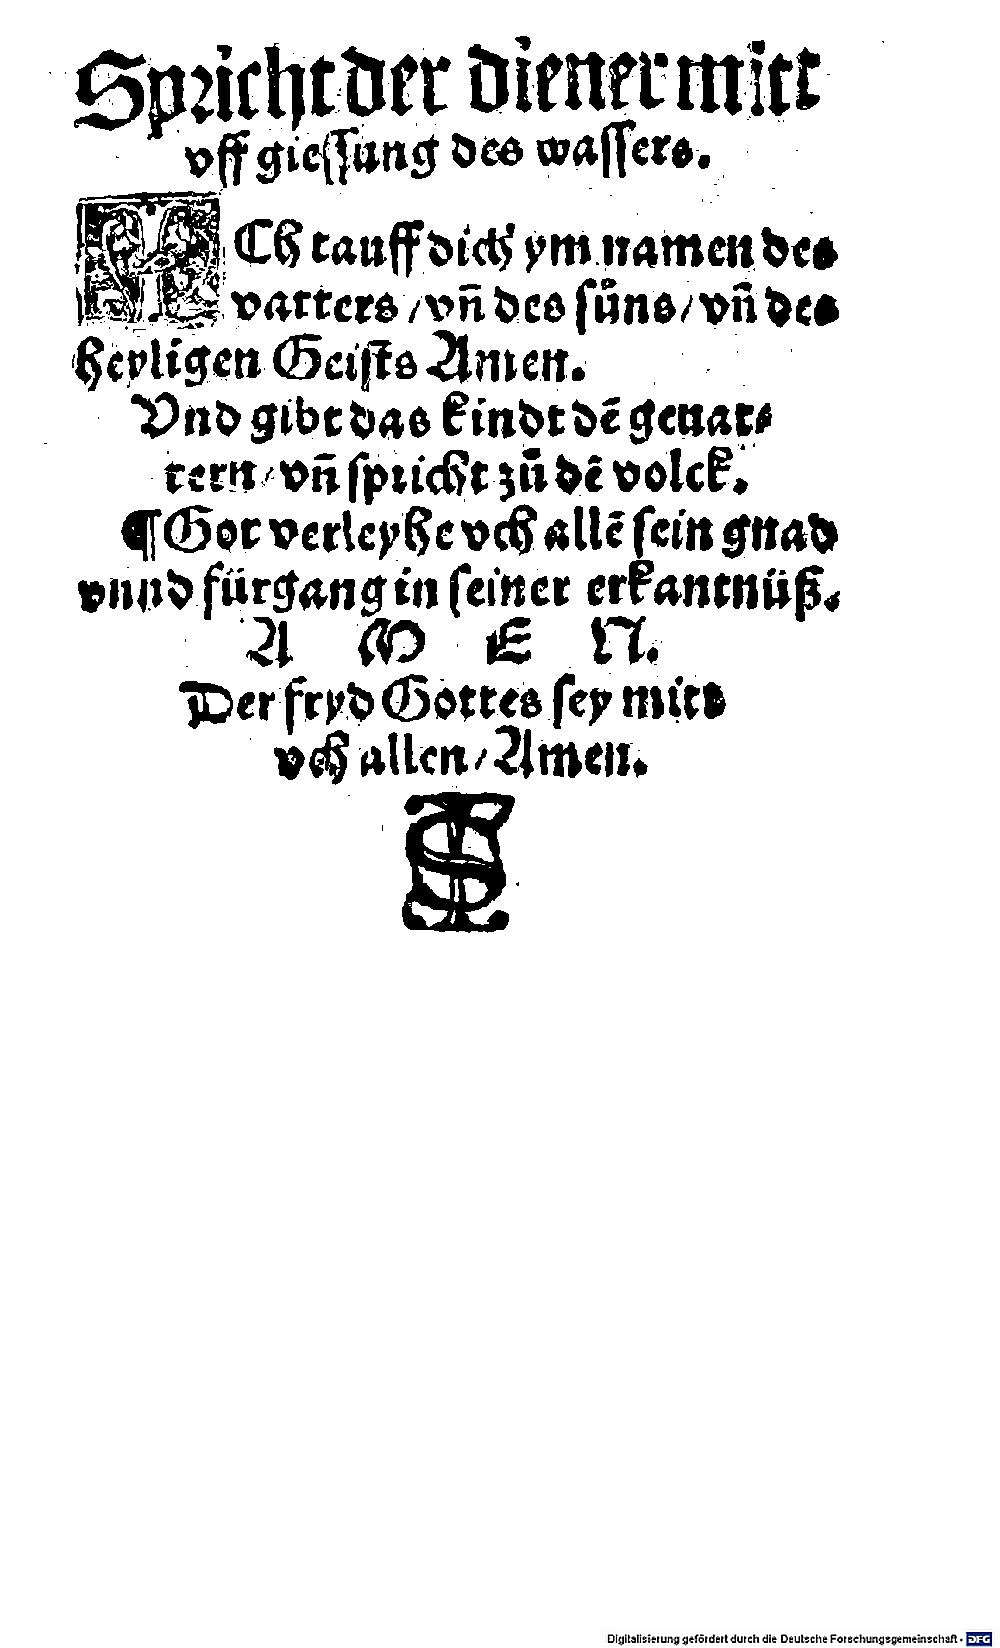 Spricht der diener mitt
vff giessung des wassers.
ICh tauff dich ym namen des
vatters / vñ des sůns / vñ des
heyligen Geists Amen.
Vnd gibt das kindt dē geuat⸗
tern / vñ spricht zů dē volck.
¶ Got verleyhe vch allē sein gnad
vnnd fürgang in seiner erkantnüß.
A M E N.
Der fryd Gottes sey mitt
vch allen / Amen.
Digitalisierung gefördert durch die Deutsche Forschungsgemeinschaft - DFG